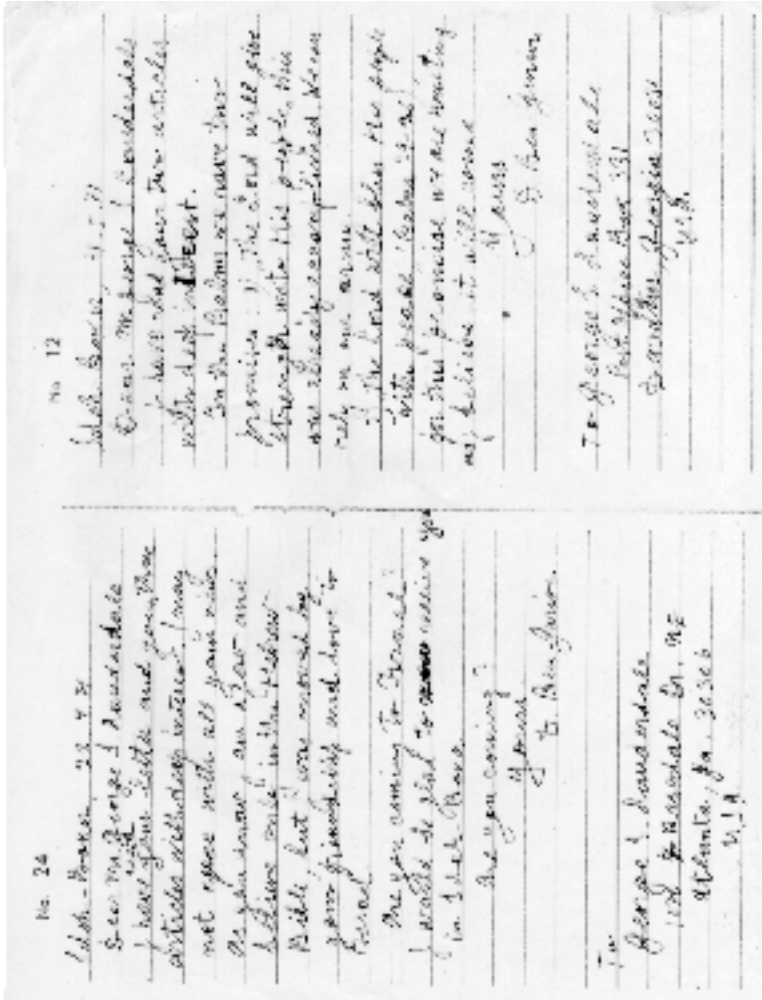 No. 24
Sdeh-Boker
Dear Mr. George Lauderdale
I have your letter and your three
articles with deep interest. I may
not agree with all your
As you know an a Jew and
believe only in the Hebrew
Bible but I was moved by
your friendship and love to
Israel
Are you coming to Israel?
I would be glad to receive you
in Sdeh-Boker
Are you coming?
Yours
D. Ben Gurion.
To
George Lauderdale
Dr. NE
Atlanta, Ga. 30306
USA
No 12
Sdeh Boker,
Dear Mr. George Lauderdale
I have read your two articles
with deep interest.
In the Psalms we have two
promises: 1) The Lord will give
strength unto His people, this
was already accomplished. We can
rely on our army.
2) The Lord will bless His people
with peace
for this promise we are waiting
and believe it will come
Yours
D. Ben Gurion
To George Lauderdale
Post Office Box 331
Georgia
U.S.